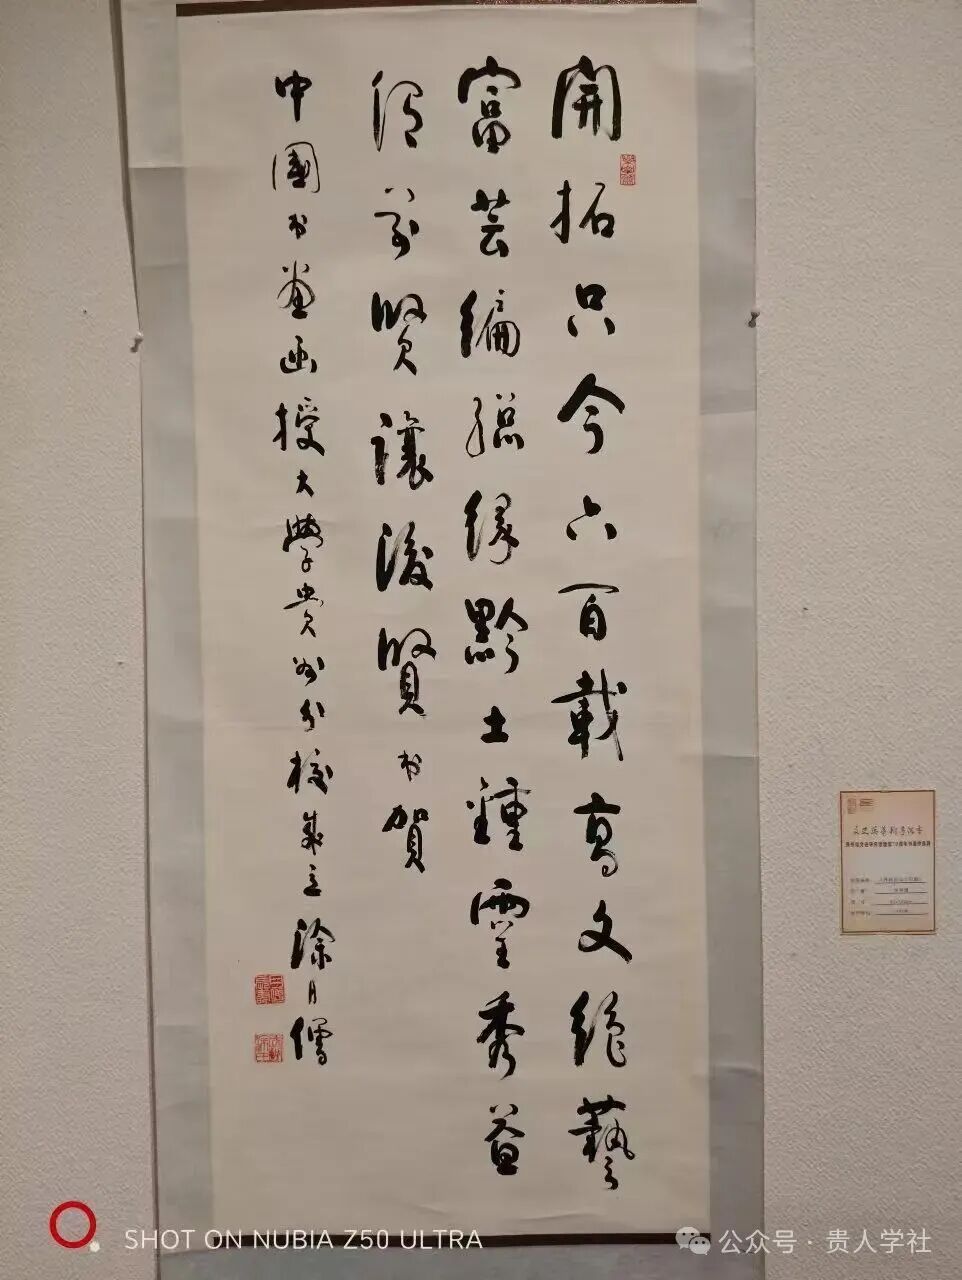 開拓只今六百載高文絶藝
富芸編總緣黔土鍾靈秀益
信前賢讓後賢书賀
中國书畫函授大學貴州分校成立 涂月僧
SHOT ON NUBIA Z50 ULTRA
公众号·贵人学社